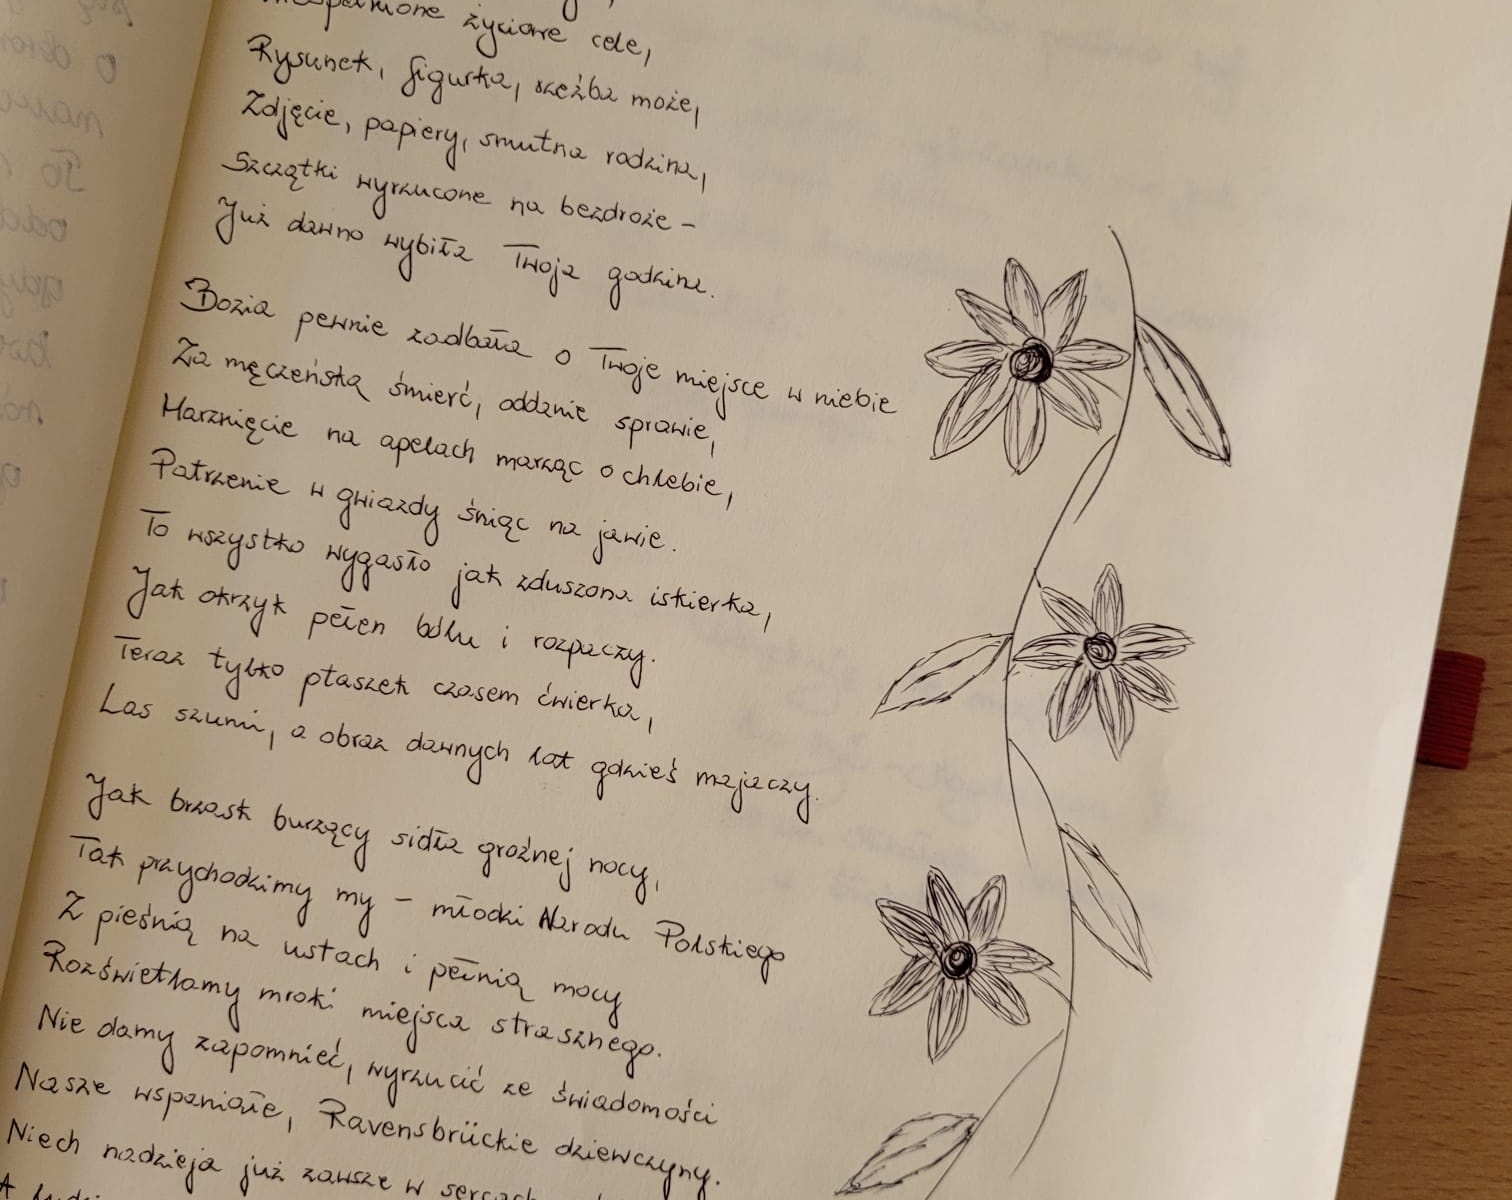 życiowe cele,
Rysunek, figurka, rzeźba może,
Zdjęcie, papiery, smutna rodzina,
Szczątki wyrzucone na bezdroże –
Już dawno wybiła Twoja godzina.
Bozia pewnie zadbała o Twoje miejsce w niebie
Za męczeńską śmierć, oddanie sprawie,
Marznięcie na apelach marząc o chlebie,
Patrzenie w gwiazdy śniąc na jawie.
To wszystko wygasło jak zduszona iskierka,
Jak okrzyk pełen bólu i rozpaczy.
Teraz tylko ptaszek czasem ćwierka,
Las szumi, a obraz dawnych lat gdzieś majaczy.
Jak brzask burzący sidła groźnej nocy,
Tak przychodzimy my – młodzi Narodu Polskiego
Z pieśnią na ustach i pełnią mocy
Rozświetlamy mroki miejsca strasznego.
Nie damy zapomnieć, wyrzucić ze świadomości
Nasze wspaniałe, Ravensbrückie dziewczyny.
Niech nadzieja już zawsze w sercach